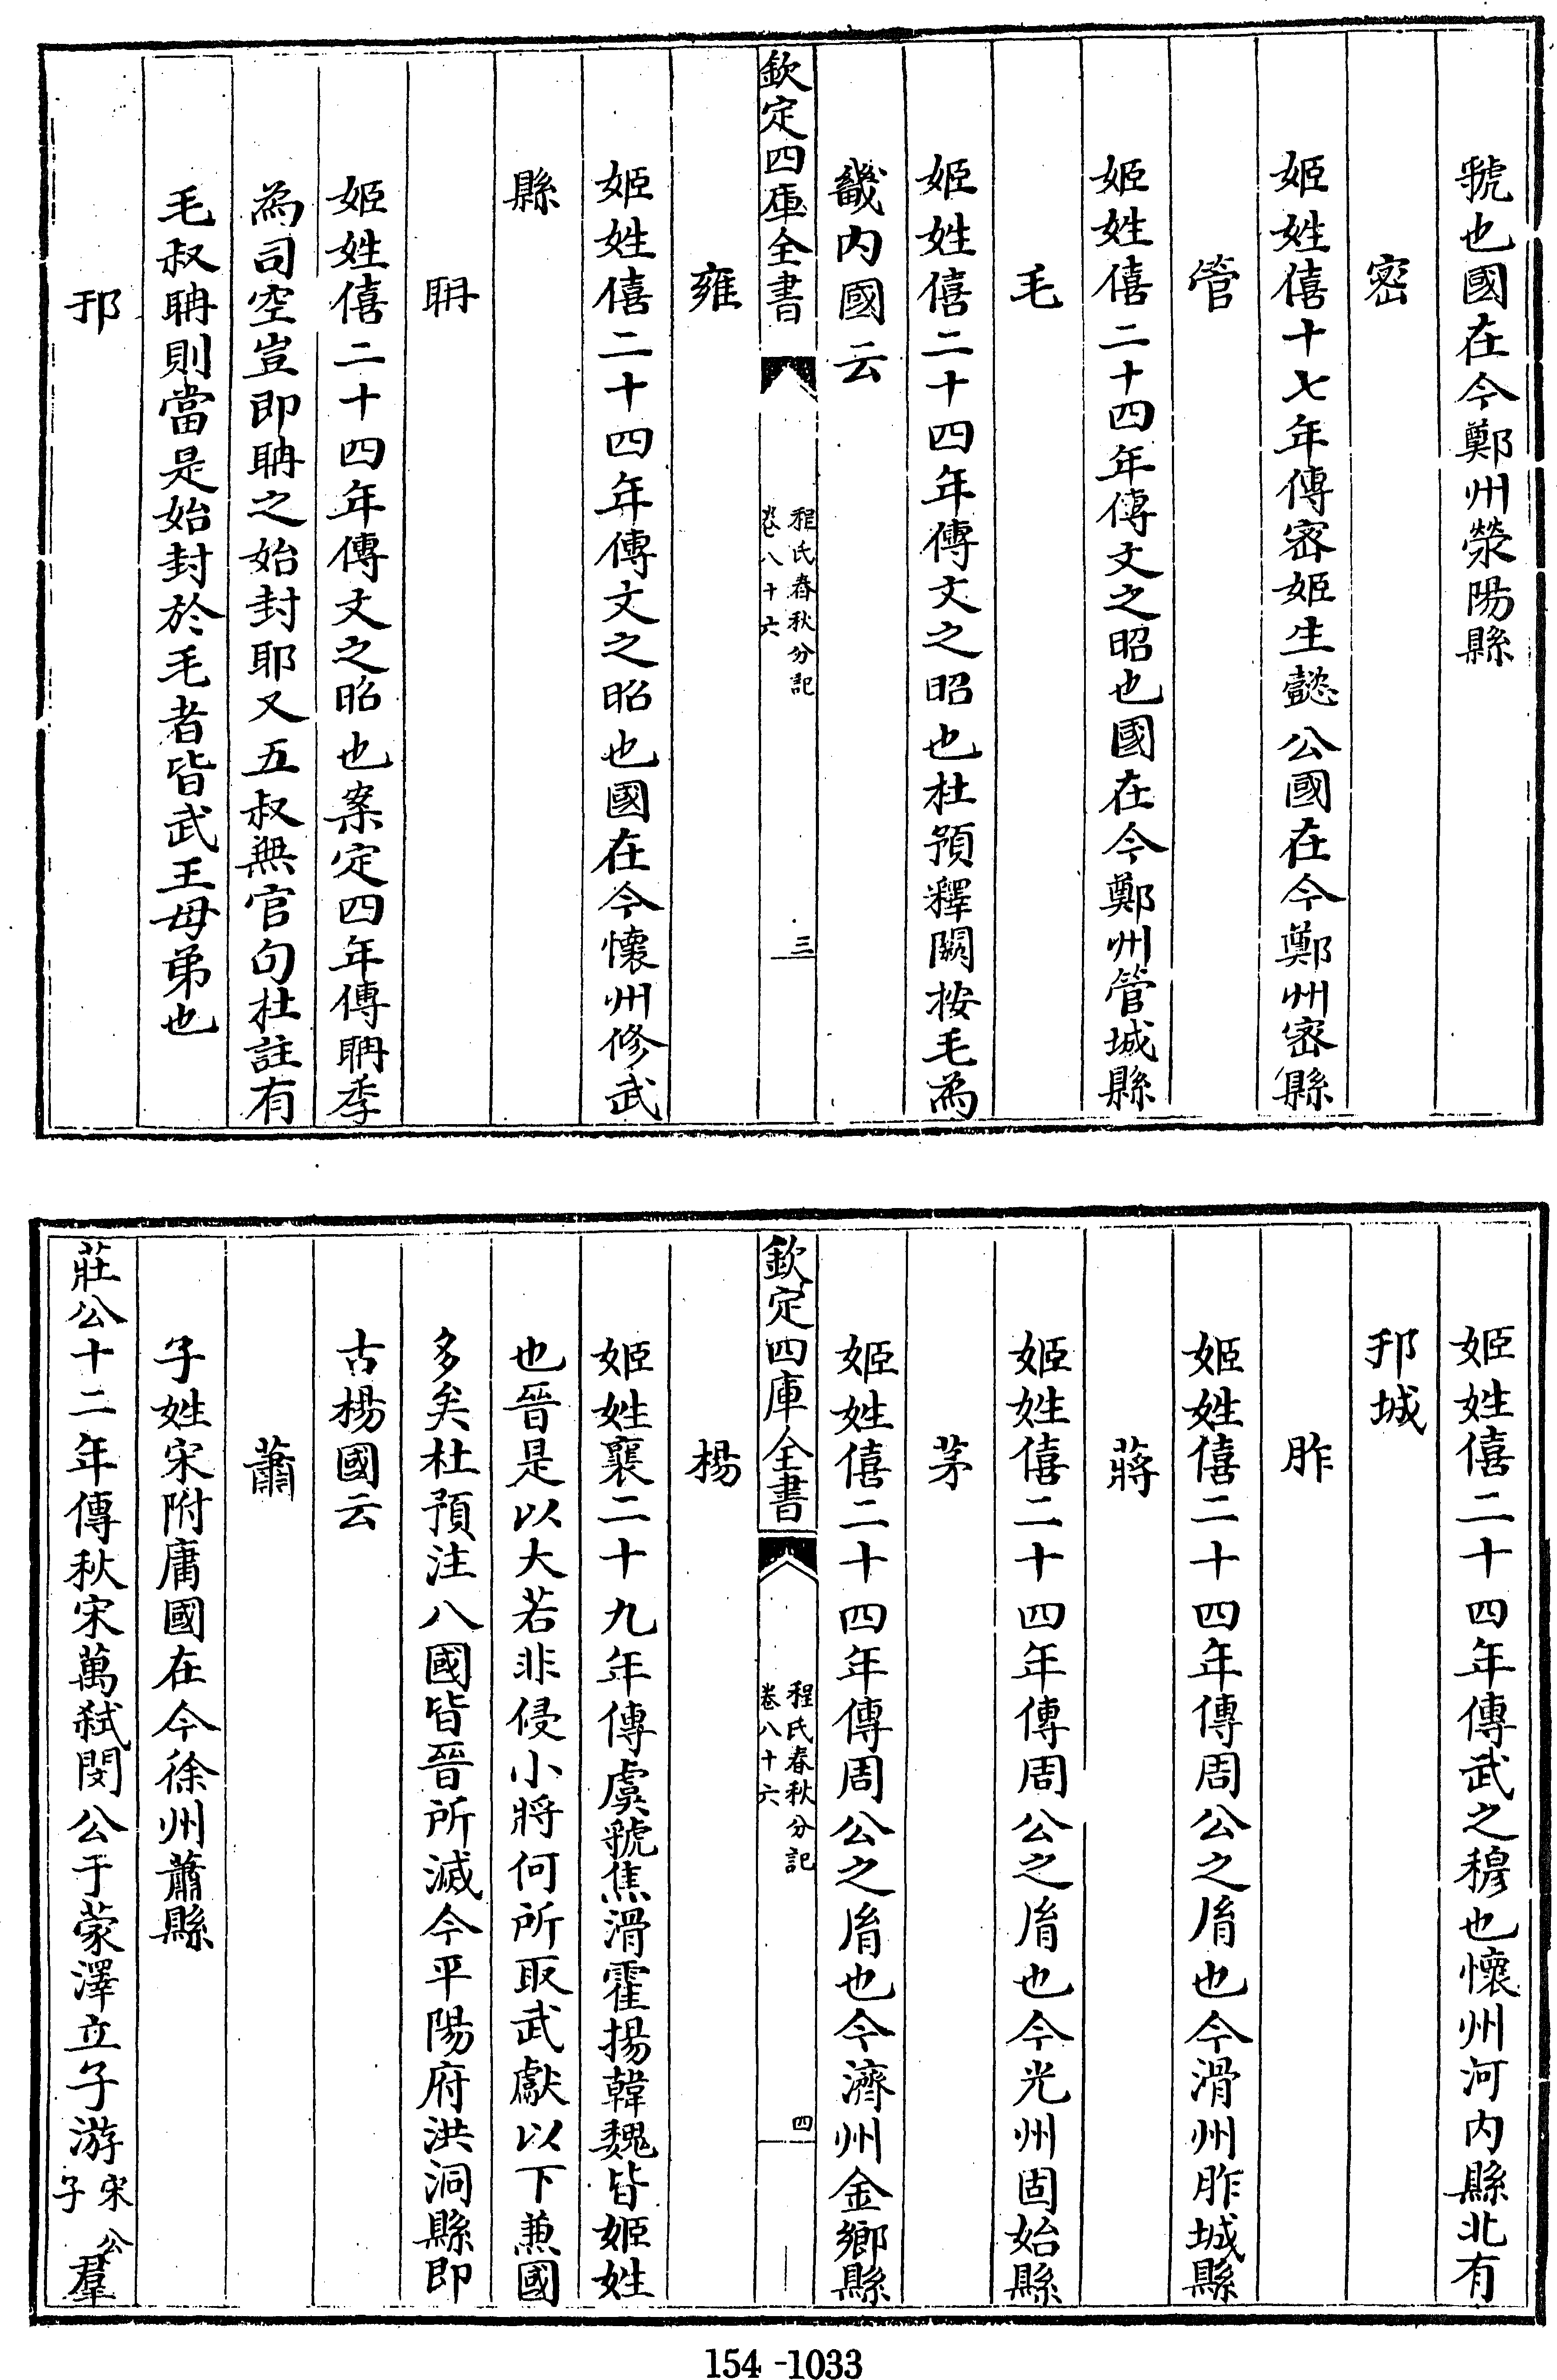 虢也國在今鄭州滎陽縣
密
姬姓僖十七年傳密姬生懿公國在今鄭州密縣
管
姬姓僖二十四年傳文之昭也國在今鄭州管城縣
毛
姬姓僖二十四年傳文之昭也杜預釋闕按毛為
畿内國云
欽定四庫全書
程氏春秋分記
卷八十六
三
雍
姬姓僖二十四年傳文之昭也國在今懷州修武
縣
聃
姬姓僖二十四年傳文之昭也案定四年傳聃季
為司空豈即聃之始封耶又五叔無官句杜註有
毛叔聃則當是始封於毛者皆武王母弟也
邘
姬姓僖二十四年傳武之穆也懷州河内縣北有
邘城
胙
姬姓僖二十四年傳周公之胤也今滑州胙城縣
蔣
姬姓僖二十四年傳周公之胤也今光州固始縣
茅
姬姓僖二十四年傳周公之胤也今濟州金鄉縣
欽定四庫全書
程氏春秋分記
卷八十六
四
楊
姬姓襄二十九年傳虞虢焦滑霍揚韓魏皆姬姓
也晉是以大若非侵小將何所取武獻以下兼國
多矣杜預注八國皆晉所滅今平陽府洪洞縣即
古楊國云
蕭
子姓宋附庸國在今徐州蕭縣
莊公十二年傳秋宋萬弑閔公于蒙澤立子游宋公子羣
154-1033